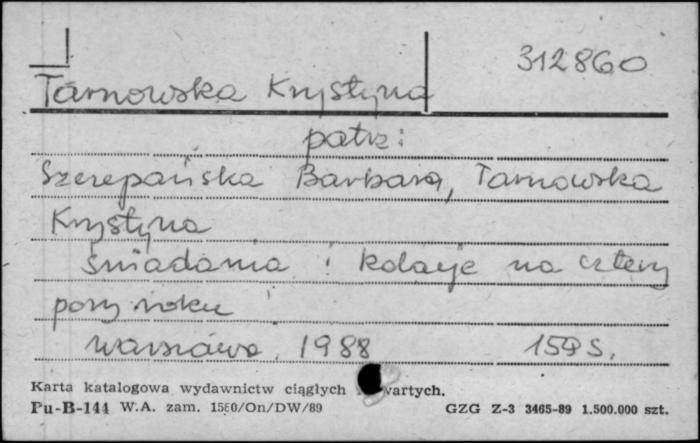 312860
Tarnowska Krystyna
patrz:
Szczepańska Barbara, Tarnowska
Krystyna
Śniadania i kolacje na cztery
pory roku
Warszawa, 1988 159 s.
Karta katalogowa wydawnictw ciągłych wartych.
Pu-B-144 W.A. zam. 1560/On/DW/89 GZG Z-3 3465-89 1.500.000 szt.